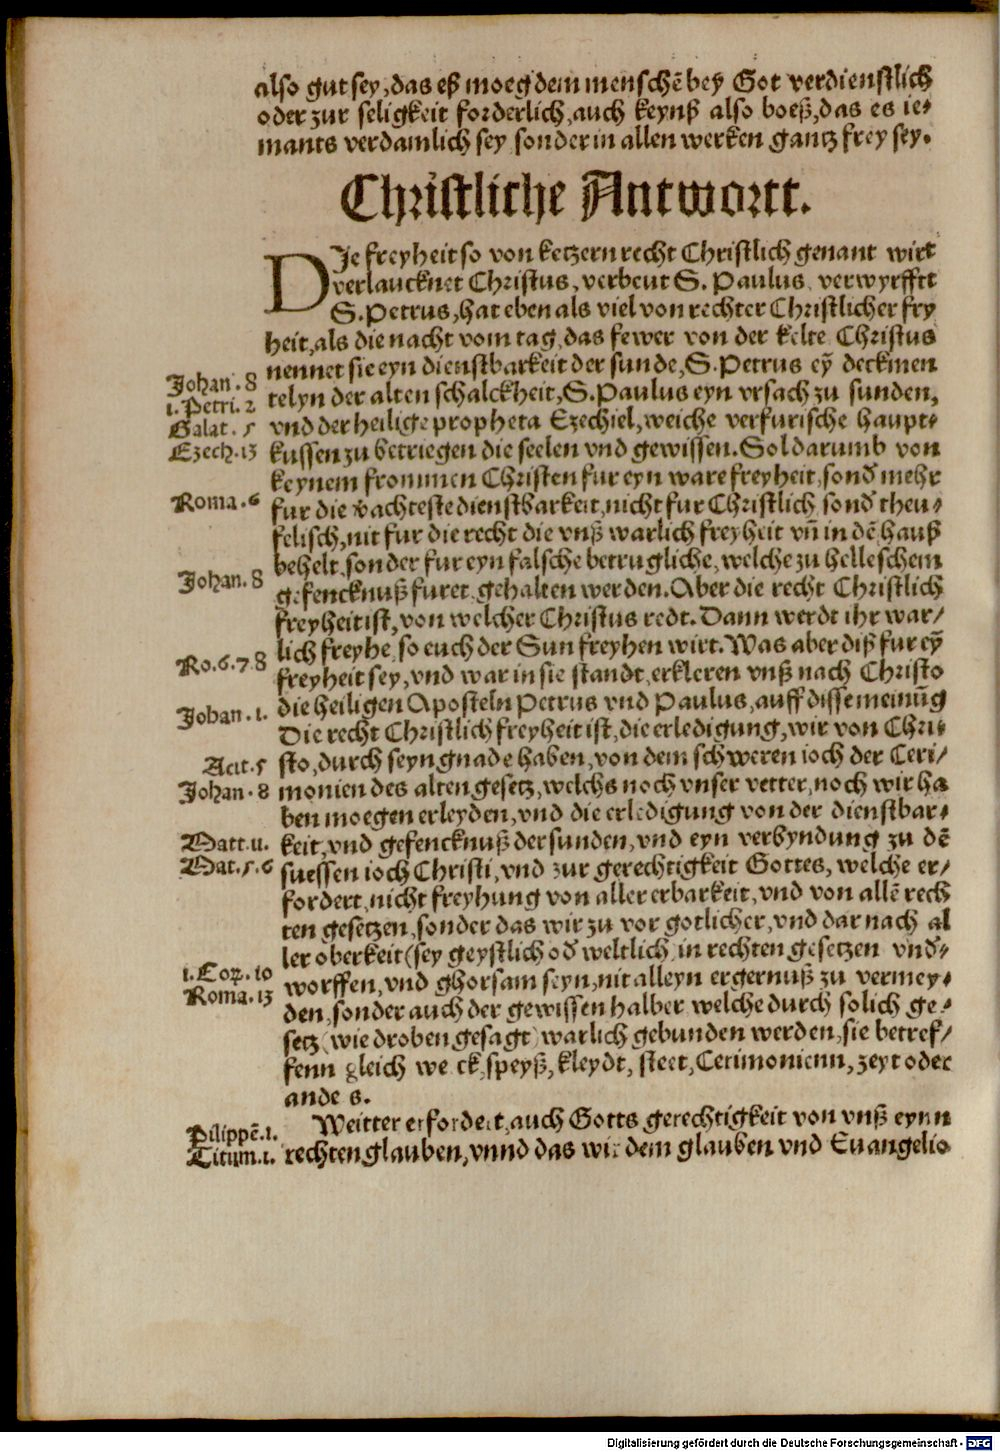 also gut sey, das eß moeg dem menschē bey Got verdienstlich
oder zur seligkeit forderlich, auch keynß also boeß, das es ie-
mants verdamlich sey sonder in allen werken gantz frey sey.
Christliche Antwortt.
DIe freyheit so von ketzern recht Christlich genant wirt
verlaucknet Christus, verbeut S. Paulus, verwyrfftt
S. Petrus, hat eben als viel von rechter Christlicher fry
heit, als die nacht vom tag, das fewer von der kelte Christus
nennet sie eyn dienstbarkeit der sunde, S. Petrus eỹ deckmen
Johan. 8
telyn der alten schalckheit, S. Paulus eyn vrsach zu sunden,
1. Petri. 2
vnd der heilige propheta Ezechiel, weiche verfurische haupt-
Galat. 5
kussen zu betriegen die seelen vnd gewissen. Sol darumb von
Ezech. 13
keynem frommen Christen fur eyn ware freyheit, sond mehr
fur die vachteste dienstbarkeit, nicht fur Christlich sond theu-
Roma. 6
felisch, nit fur die recht die vnß warlich freyheit vñ in dē hauß
behelt, sonder fur eyn falsche betrugliche, welche zu helleschem
gefencknuß furet gehalten werden. Aber die recht Christlich
Johan. 8
freyheit ist, von welcher Christus redt. Dann werdt ihr war-
lich freyhe, so euch der Sun freyhen wirt. Was aber diß fur eỹ
freyheit sey, vnd war in sie standt, erkleren vnß nach Christo
Ro. 6. 7. 8
die heiligen Aposteln Petrus vnd Paulus, auff disse meinūg
Johan. 1.
Die recht Christlich freyheit ist, die erledigung, wir von Chri-
sto, durch seyn gnade haben, von dem schweren ioch der Ceri-
Actt. 5
monien des alten gesetz, welchs noch vnser vetter, noch wir ha
Johan. 8
ben moegen erleyden, vnd die erledigung von der dienstbar-
keit, vnd gefencknuß der sunden, vnd eyn verbyndung zu dē
Matt. 11.
suessen ioch Christi, vnd zur gerechtigkeit Gottes, welche er-
Mat. 5. 6
fordert, nicht freyhung von aller erbarkeit, vnd von allē rech
ten gesetzen, sonder das wir zu vor gotlicher, vnd dar nach al
ler oberkeit (sey geystlich od weltlich in rechten gesetzen vnd-
worffen, vnd ghorsam seyn, nit alleyn ergernuß zu vermey-
1. Cor. 10
den, sonder auch der gewissen halber welche durch solich ge-
Roma. 13
setz (wie droben gesagt) warlich gebunden werden, sie betref-
fenn gleich we ck, speyß, kleydt, steet, Cerimonienn, zeyt oder
ande s.
Weitter erfordert, auch Gotts gerechtigkeit von vnß eynn
Pilippē. 1.
rechten glauben, vnnd das wir dem glauben vnd Euangelio
Titum. 1.
Digitalisierung gefördert durch die Deutsche Forschungsgemeinschaft - DFG